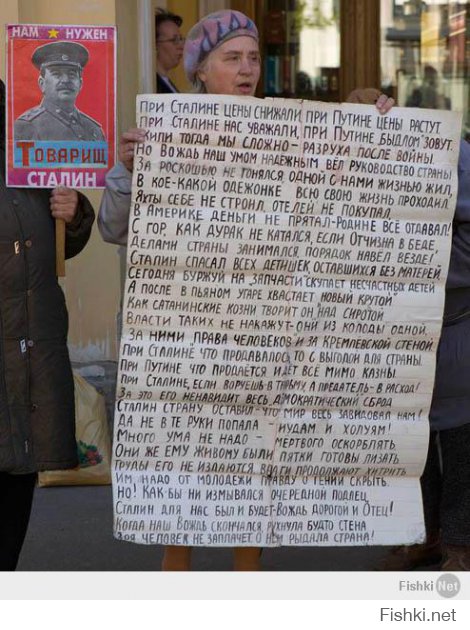 НАМ НУЖЕН
ТОВАРИЩ
СТАЛИН
ПРИ СТАЛИНЕ ЦЕНЫ СНИЖАЛИ ПРИ ПУТИНЕ ЦЕНЫ РАСТУТ
ПРИ СТАЛИНЕ НАС УВАЖАЛИ, ПРИ ПУТИНЕ БЫДЛОМ ЗОВУТ.
ЖИЛИ ТОГДА МЫ СЛОЖНО - РАЗРУХА ПОСЛЕ ВОЙНЫ.
НО ВОЖДЬ НАШ УМОМ НАДЁЖНЫМ ВЁЛ РУКОВОДСТВО СТРАНЫ
ЗА РОСКОШЬЮ НЕ ГОНЯЛСЯ, ОДНОЙ С НАМИ ЖИЗНЬЮ ЖИЛ,
В КОЕ-КАКОЙ ОДЁЖОНКЕ ВСЮ СВОЮ ЖИЗНЬ ПРОХОДИЛ.
ЯХТЫ СЕБЕ НЕ СТРОИЛ, ОТЕЛЕЙ НЕ ПОКУПАЛ
В АМЕРИКЕ ДЕНЬГИ НЕ ПРЯТАЛ-РОДИНЕ ВСЁ ОТДАВАЛ!
С ГОР, КАК ДУРАК НЕ КАТАЛСЯ, ЕСЛИ ОТЧИЗНА В БЕДЕ,
ДЕЛАМИ СТРАНЫ ЗАНИМАЛСЯ, ПОРЯДОК НАВЁЛ ВЕЗДЕ!
СТАЛИН СПАСАЛ ВСЕХ ДЕТИШЕК, ОСТАВШИХСЯ БЕЗ МАТЕРЕЙ
СЕГОДНЯ БУРЖУЙ НА „ЗАПЧАСТИ" СКУПАЕТ НЕСЧАСТНЫХ ДЕТЕЙ
А ПОСЛЕ В ПЬЯНОМ УГАРЕ ХВАСТАЕТ „НОВЫЙ КРУТОЙ"
КАК САТАНИНСКИЕ КОЗНИ ТВОРИТ ОН НАД СИРОТОЙ
ВЛАСТИ ТАКИХ НЕ НАКАЖУТ-ОНИ ИЗ КОЛОДЫ ОДНОЙ.
ЗА НИМИ ПРАВА ЧЕЛОВЕКОВ И ЗА КРЕМЛЕВСКОЙ СТЕНОЙ.
ПРИ СТАЛИНЕ ЧТО ПРОДАВАЛОСЬ, ТО С ВЫГОДОЙ ДЛЯ СТРАНЫ
ПРИ ПУТИНЕ ЧТО ПРОДАЁТСЯ ИДЁТ ВСЁ МИМО КАЗНЫ
ПРИ СТАЛИНЕ, ЕСЛИ ВОРУЕШЬ-В ТЮРЬМУ, А ПРЕДАТЕЛЬ-В РАСХОД!
ЗА ЭТО ЕГО НЕНАВИДИТ ВЕСЬ ДЕМОКРАТИЧЕСКИЙ СБРОД
СТАЛИН СТРАНУ ОСТАВИЛ ЧТО МИР ВЕСЬ ЗАВИДОВАЛ НАМ!
ДА НЕ В ТЕ РУКИ ПОПАЛА - ИУДАМ И ХОЛУЯМ!
МНОГО УМА НЕ НАДО - МЁРТВОГО ОСКОРБЛЯТЬ
ОНИ ЖЕ ЕМУ ЖИВОМУ БЫЛИ ПЯТКИ ГОТОВЫ ЛИЗАТЬ
ТРУДЫ ЕГО НЕ ИЗДАЮТСЯ, ВРАГИ ПРОДОЛЖАЮТ ХИТРИТЬ
ИМ, НАДО ОТ МОЛОДЁЖИ ПРАВДУ О ГЕНИИ СКРЫТЬ.
НО! КАК-БЫ НИ ИЗМЫВАЛСЯ ОЧЕРЕДНОЙ ПОДЛЕЦ,
СТАЛИН ДЛЯ НАС БЫЛ И БУДЕТ-ВОЖДЬ ДОРОГОЙ И ОТЕЦ!
КОГДА НАШ ВОЖДЬ СКОНЧАЛСЯ, РУХНУЛА БУДТО СТЕНА
ЗРЯ ЧЕЛОВЕК НЕ ЗАПЛАЧЕТ, О НЁМ РЫДАЛА СТРАНА!
Fishki Net
Fishki.net